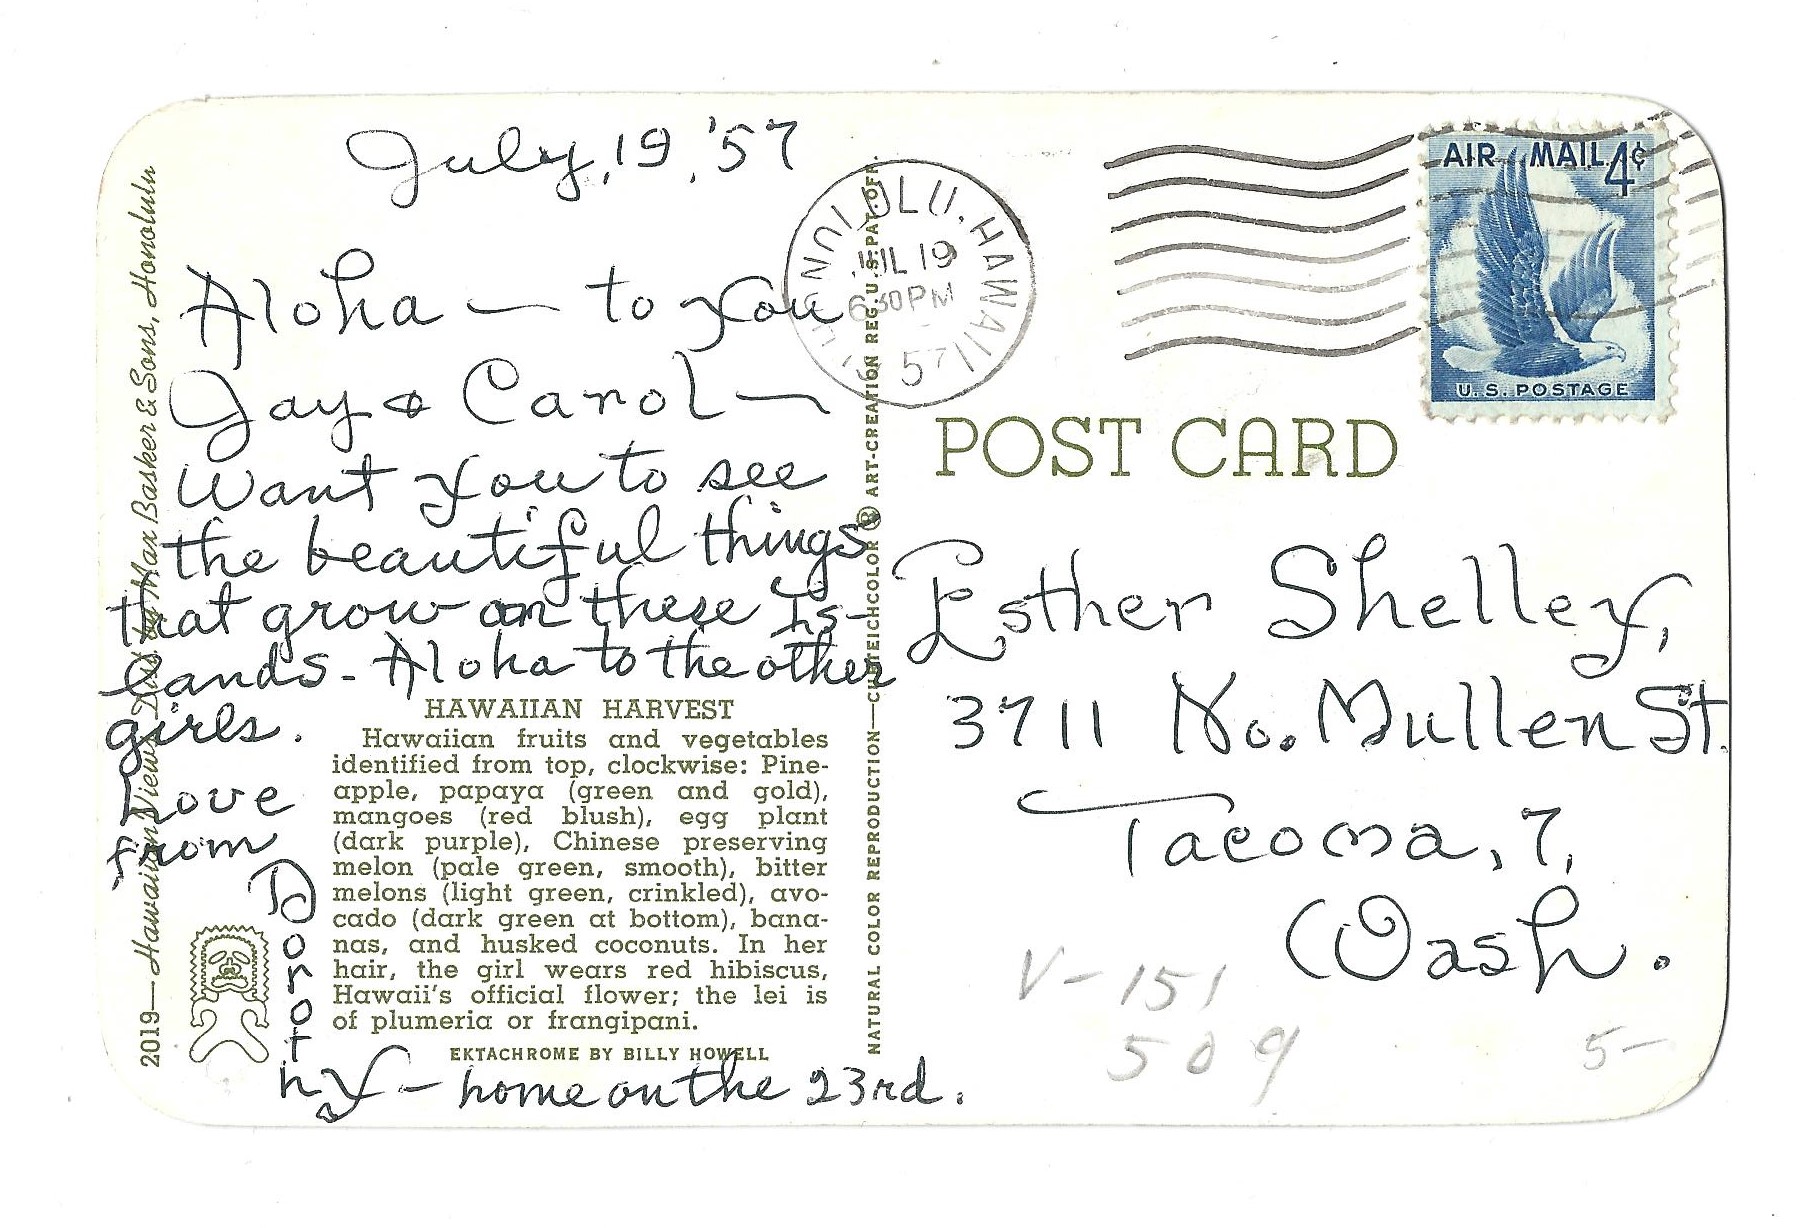 July, 19, '57
Aloha — to you
Jay & Carol —
Want you to see
the beautiful things
that grow on these Is-
lands - Aloha to the other
girls.
Love
from
Dorothy - home on the 23rd.
HAWAIIAN HARVEST
Hawaiian fruits and vegetables
identified from top, clockwise: Pine-
apple, papaya (green and gold),
mangoes (red blush), egg plant
(dark purple), Chinese preserving
melon (pale green, smooth), bitter
melons (light green, crinkled), avo-
cado (dark green at bottom), bana-
nas, and husked coconuts. In her
hair, the girl wears red hibiscus,
Hawaii's official flower; the lei is
of plumeria or frangipani.
EKTACHROME BY BILLY HOWELL
2019—Hawaiian Views Dist. by Max Basker & Sons, Honolulu
NATURAL COLOR REPRODUCTION—CURTEICHCOLOR ® ART-CREATION REG. U.S. PAT. OFF.
HONOLULU, HAWAII
JUL 19
630PM
57
AIR MAIL 4¢
U.S. POSTAGE
POST CARD
Esther Shelley,
3711 No. Mullen St.
Tacoma, 7,
Wash.
V-151
509
5-